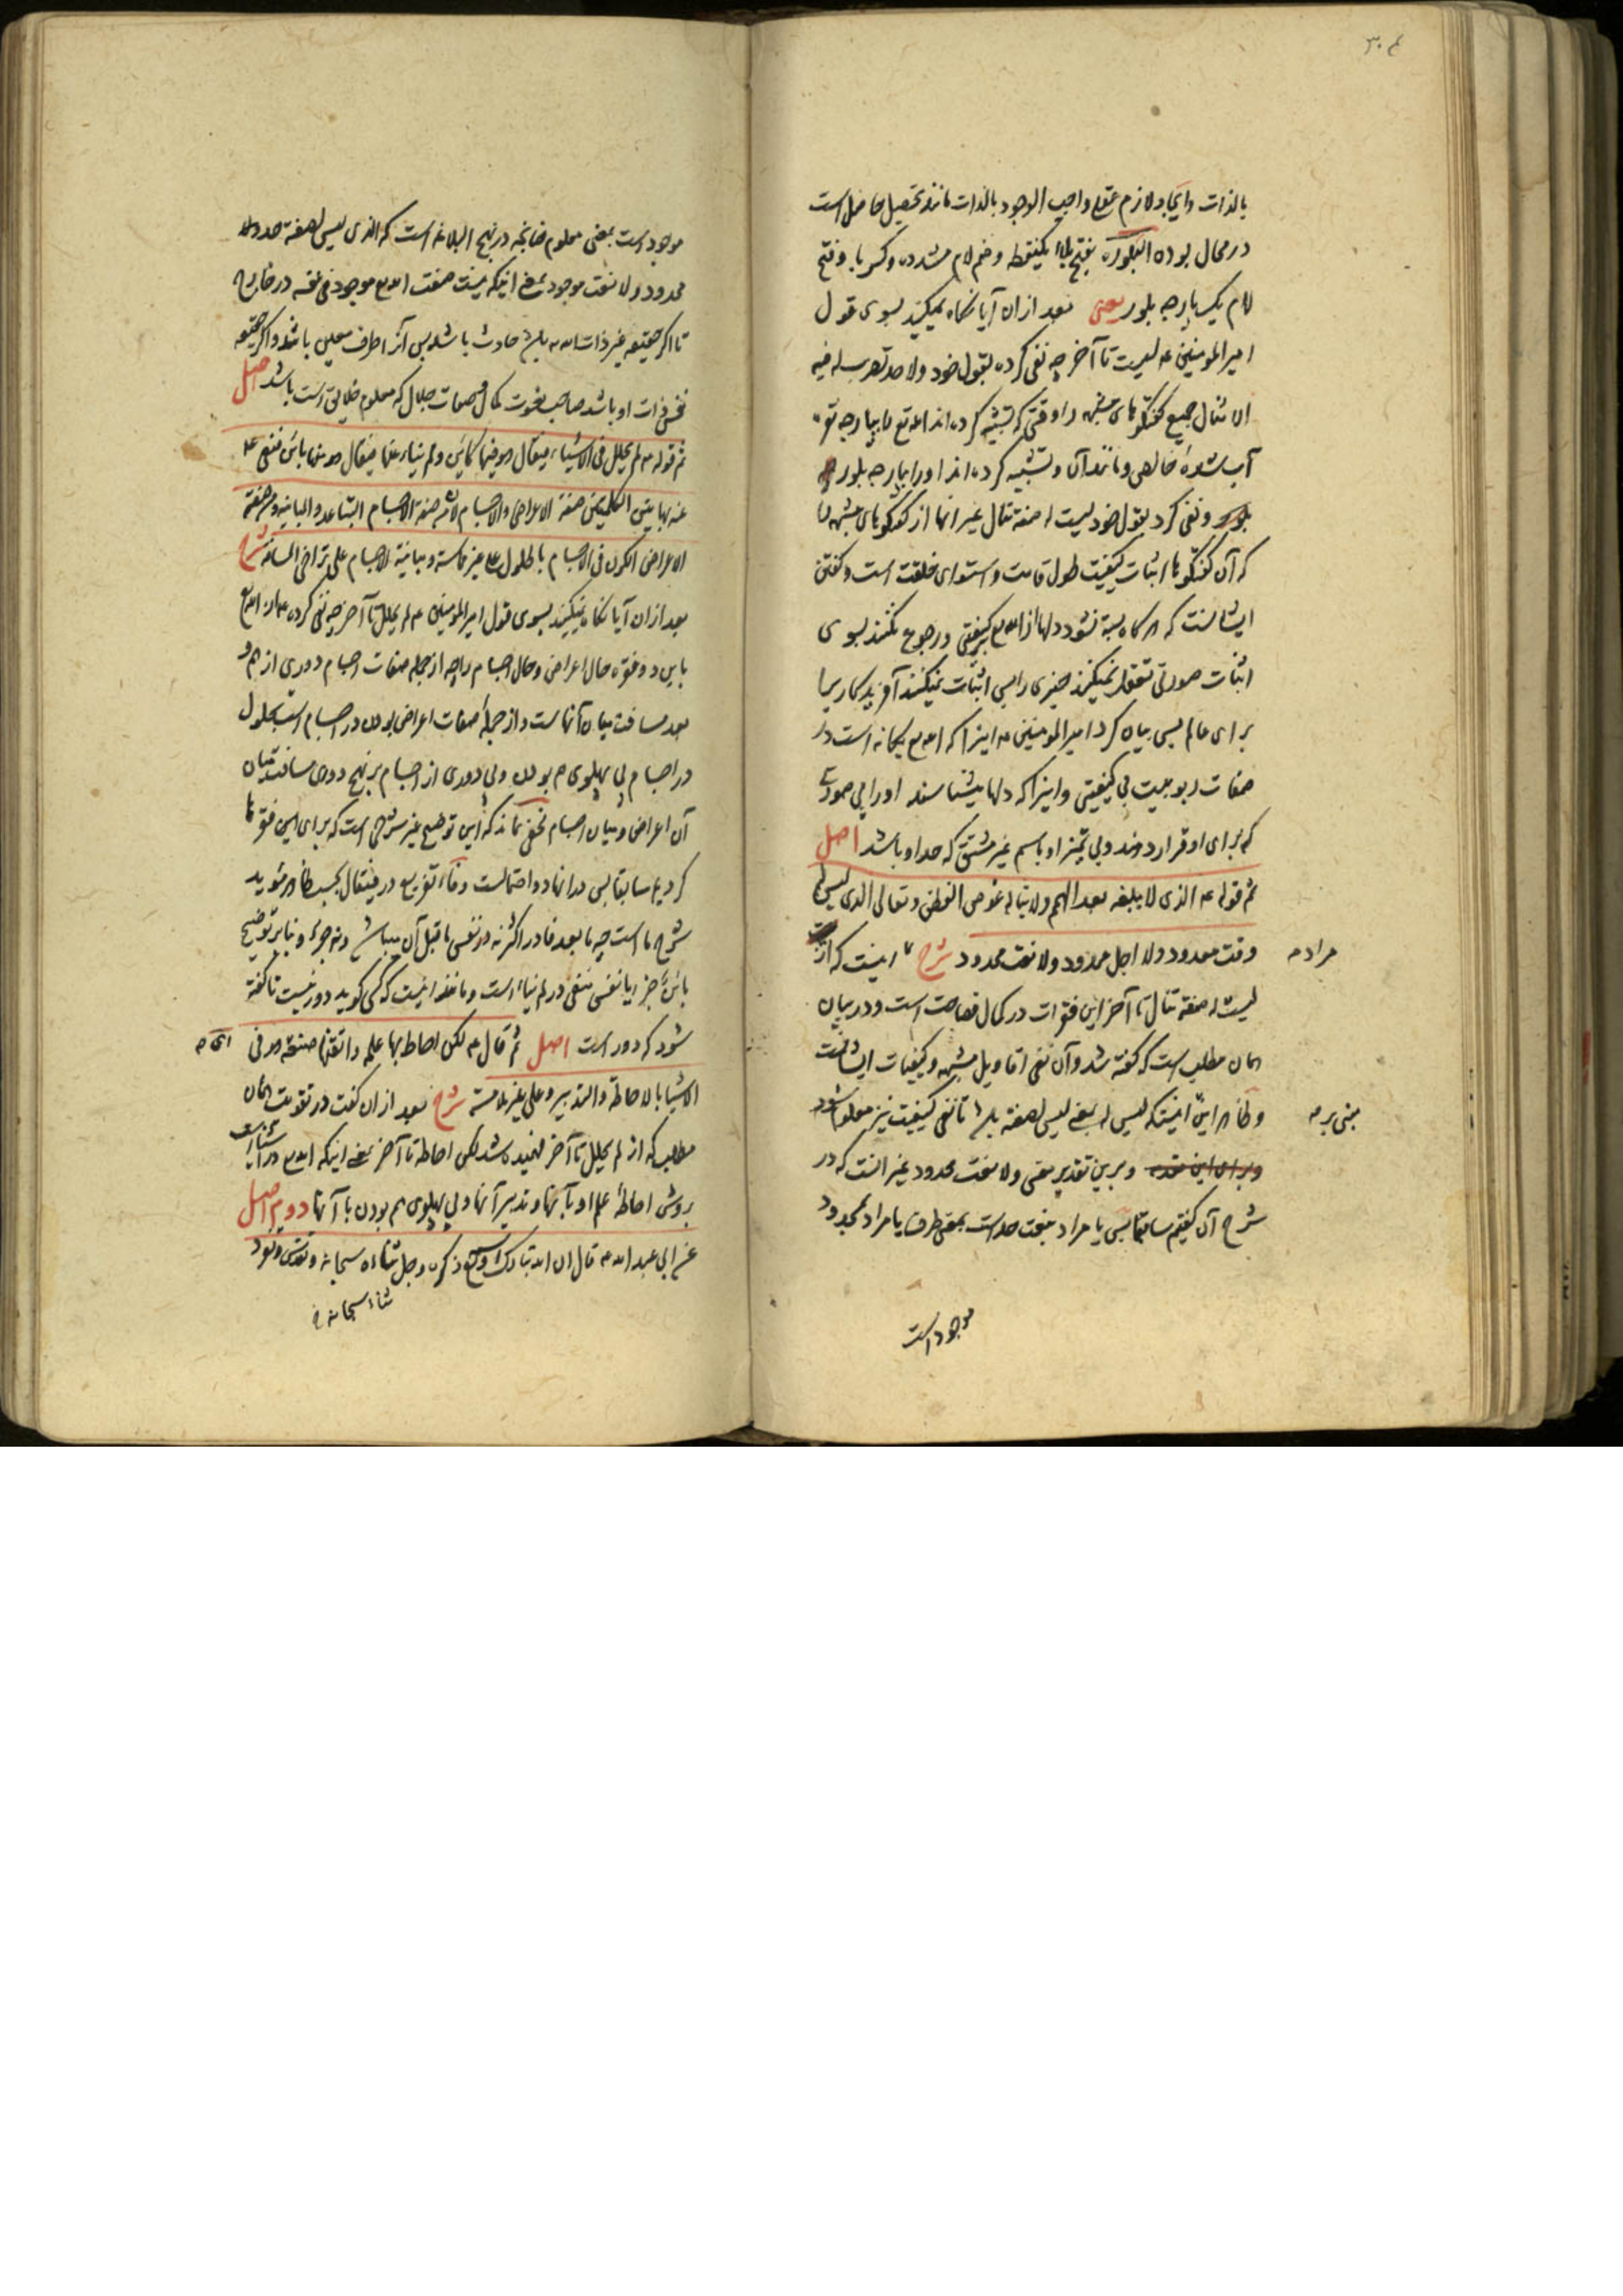 ۳۰۴
بالذات وایجاد لازم عقلی واجب الوجود بالذات مانند تحصیل حاصل است
در محال بوده البلورة بفتح باء یکنقطه وضم لام مشدده وکسر با وفتح
لام یک پارچه بلور یعنی بعد ازان آیا نگاه نمیکنید بسوی قول
امیر المومنین ع لیست تا آخر چه نفی کرده بقول خود ولا حد تضرب له فیه
الامثال جمیع گفتگوهای مشبهه را وقتی که تشبیه کرده اند الله تع را بپارچه نقره
آب شده خالص ومانند آن وتشبیه کرده اند اورا بپارچه بلور
ونفی کرد بقول خود لیست له صفة تنال غیر انها از گفتگوهای مشبهه را
که آن گفتگوها اثبات کیفیت طول قامت واستوای خلقت است وگفتن
ایشانست که هر گاه بسته نشود دلها از الله تع بر کیفیتی ورجوع نکنند بسوی
اثبات صورتی تعقل نمیکنند چیزی را پس اثبات نمیکنند آفریدگاری را
برای عالم پس بیان کرد امیر المومنین ع اینرا که الله تع یگانه است در
صفات ربوبیت بی کیفیتی واینرا که دلها میشناسند اورا بی صورت
که برای او قرار دهند وبی تمیز او باسم غیر مشتق که حد او باشد اصل
ثم قوله ع الذی لا یبلغه بعد الهمم ولا یناله غوص الفطن وتعالی الذی لیس له
وقت معدود ولا اجل ممدود ولا نعت محدود شرح اینست که از
مراد م
لیست له صفة تنال تا آخر این فقرات در کمال فصاحت است ودر بیان
همان مطلب است که گفته شد وآن نفی اقاویل مشبهه وکیفیات ایشانست
وظاهر این اینستکه لیس له بمعنی لیس لصفته باشد تا نفی کیفیت نیز معلوم شود
مبنی بر م
وبرین تقدیر معنی ولا نعت محدود غیر انست که در
شرح آن گفتیم سابقا پس یا مراد بنعت حد است بمعنی طرف یا مراد بمحدود
موجود است
موجود است بمعنی معلوم چنانچه در نهج البلاغه است که الذی لیس لصفته حد ولا
محدود ولا نعت موجود بمعنی اینکه نیست صفت الله تع موجود فی نفسه در خارج
تا اگر حقیقه غیر ذات الله تع باشد حادث باشد پس آنرا طرف معین باشد واگر حقیقه
نفس ذات او باشد صاحب نعوت کمال وصفات جلال که معلوم خلایق است باشد اصل
ثم قوله ع لم یحلل فی الاشیاء فیقال هو فیها کائن ولم ینا عنها فیقال هو منها بائن فنفی ع
عنه بهاتین الکلمتین صفة الاعراض والاجسام لان صفة الاجسام التباعد والمباینه وصفة
الاعراض الکون فی الاجسام بالحلول علی غیر مماسة ومباینة الاجسام علی تراخی المسافه شرح
بعد ازان آیا نگاه نمیکنید بسوی قول امیر المومنین ع لم یحلل تا آخر چه نفی کرده ع از الله تع
باین دو فقره حال اعراض وحال اجسام را چه از جمله صفات اجسام دوری از هم و
بعد مسافت میان آنهاست واز جمله صفات اعراض بودن در اجسام است بحلول
در اجسام بی پهلوی هم بودن وبی دوری از اجسام بر نهج دوری مسافت میان
آن اعراض ومیان اجسام مخفی نماند که این توضیح غیر شرحی است که برای این فقره ها
کردیم سابقا پس مدار انها دو احتمالست وفاء تفریع در فیقال بحسب ظاهر مؤید
شرح ما است چه ما بعد فا در اکثر نه در نفس ما قبل آن میباشد ونه جزء وبنابر توضیح
بائن جزء یا نفس منفی در لم ینا است ومانند اینست که کسی گوید دور نیست تا گفته
شود که دور است اصل ثم قال ع لکن احاط بها علمه واتقنها صنعه هو فی
ای م
الاشیا بالاحاطة والتدبیر وعلی غیر ملامسة شرح بعد ازان گفت در تقویت همان
مطلب که از لم یحلل تا آخر فهمیده شد لکن احاطه تا آخر بمعنی اینکه الله تع در اشیاست
بروش احاطهٔ علم او بآنها وتدبیر آنها وبی پهلوی هم بودن با آنها دویم اصل
عن ابی عبد الله ع قال ان الله تبارک وتع ذکره وجل ثناؤه سبحانه وتقدس وتفرد
ثناؤه سبحانه و